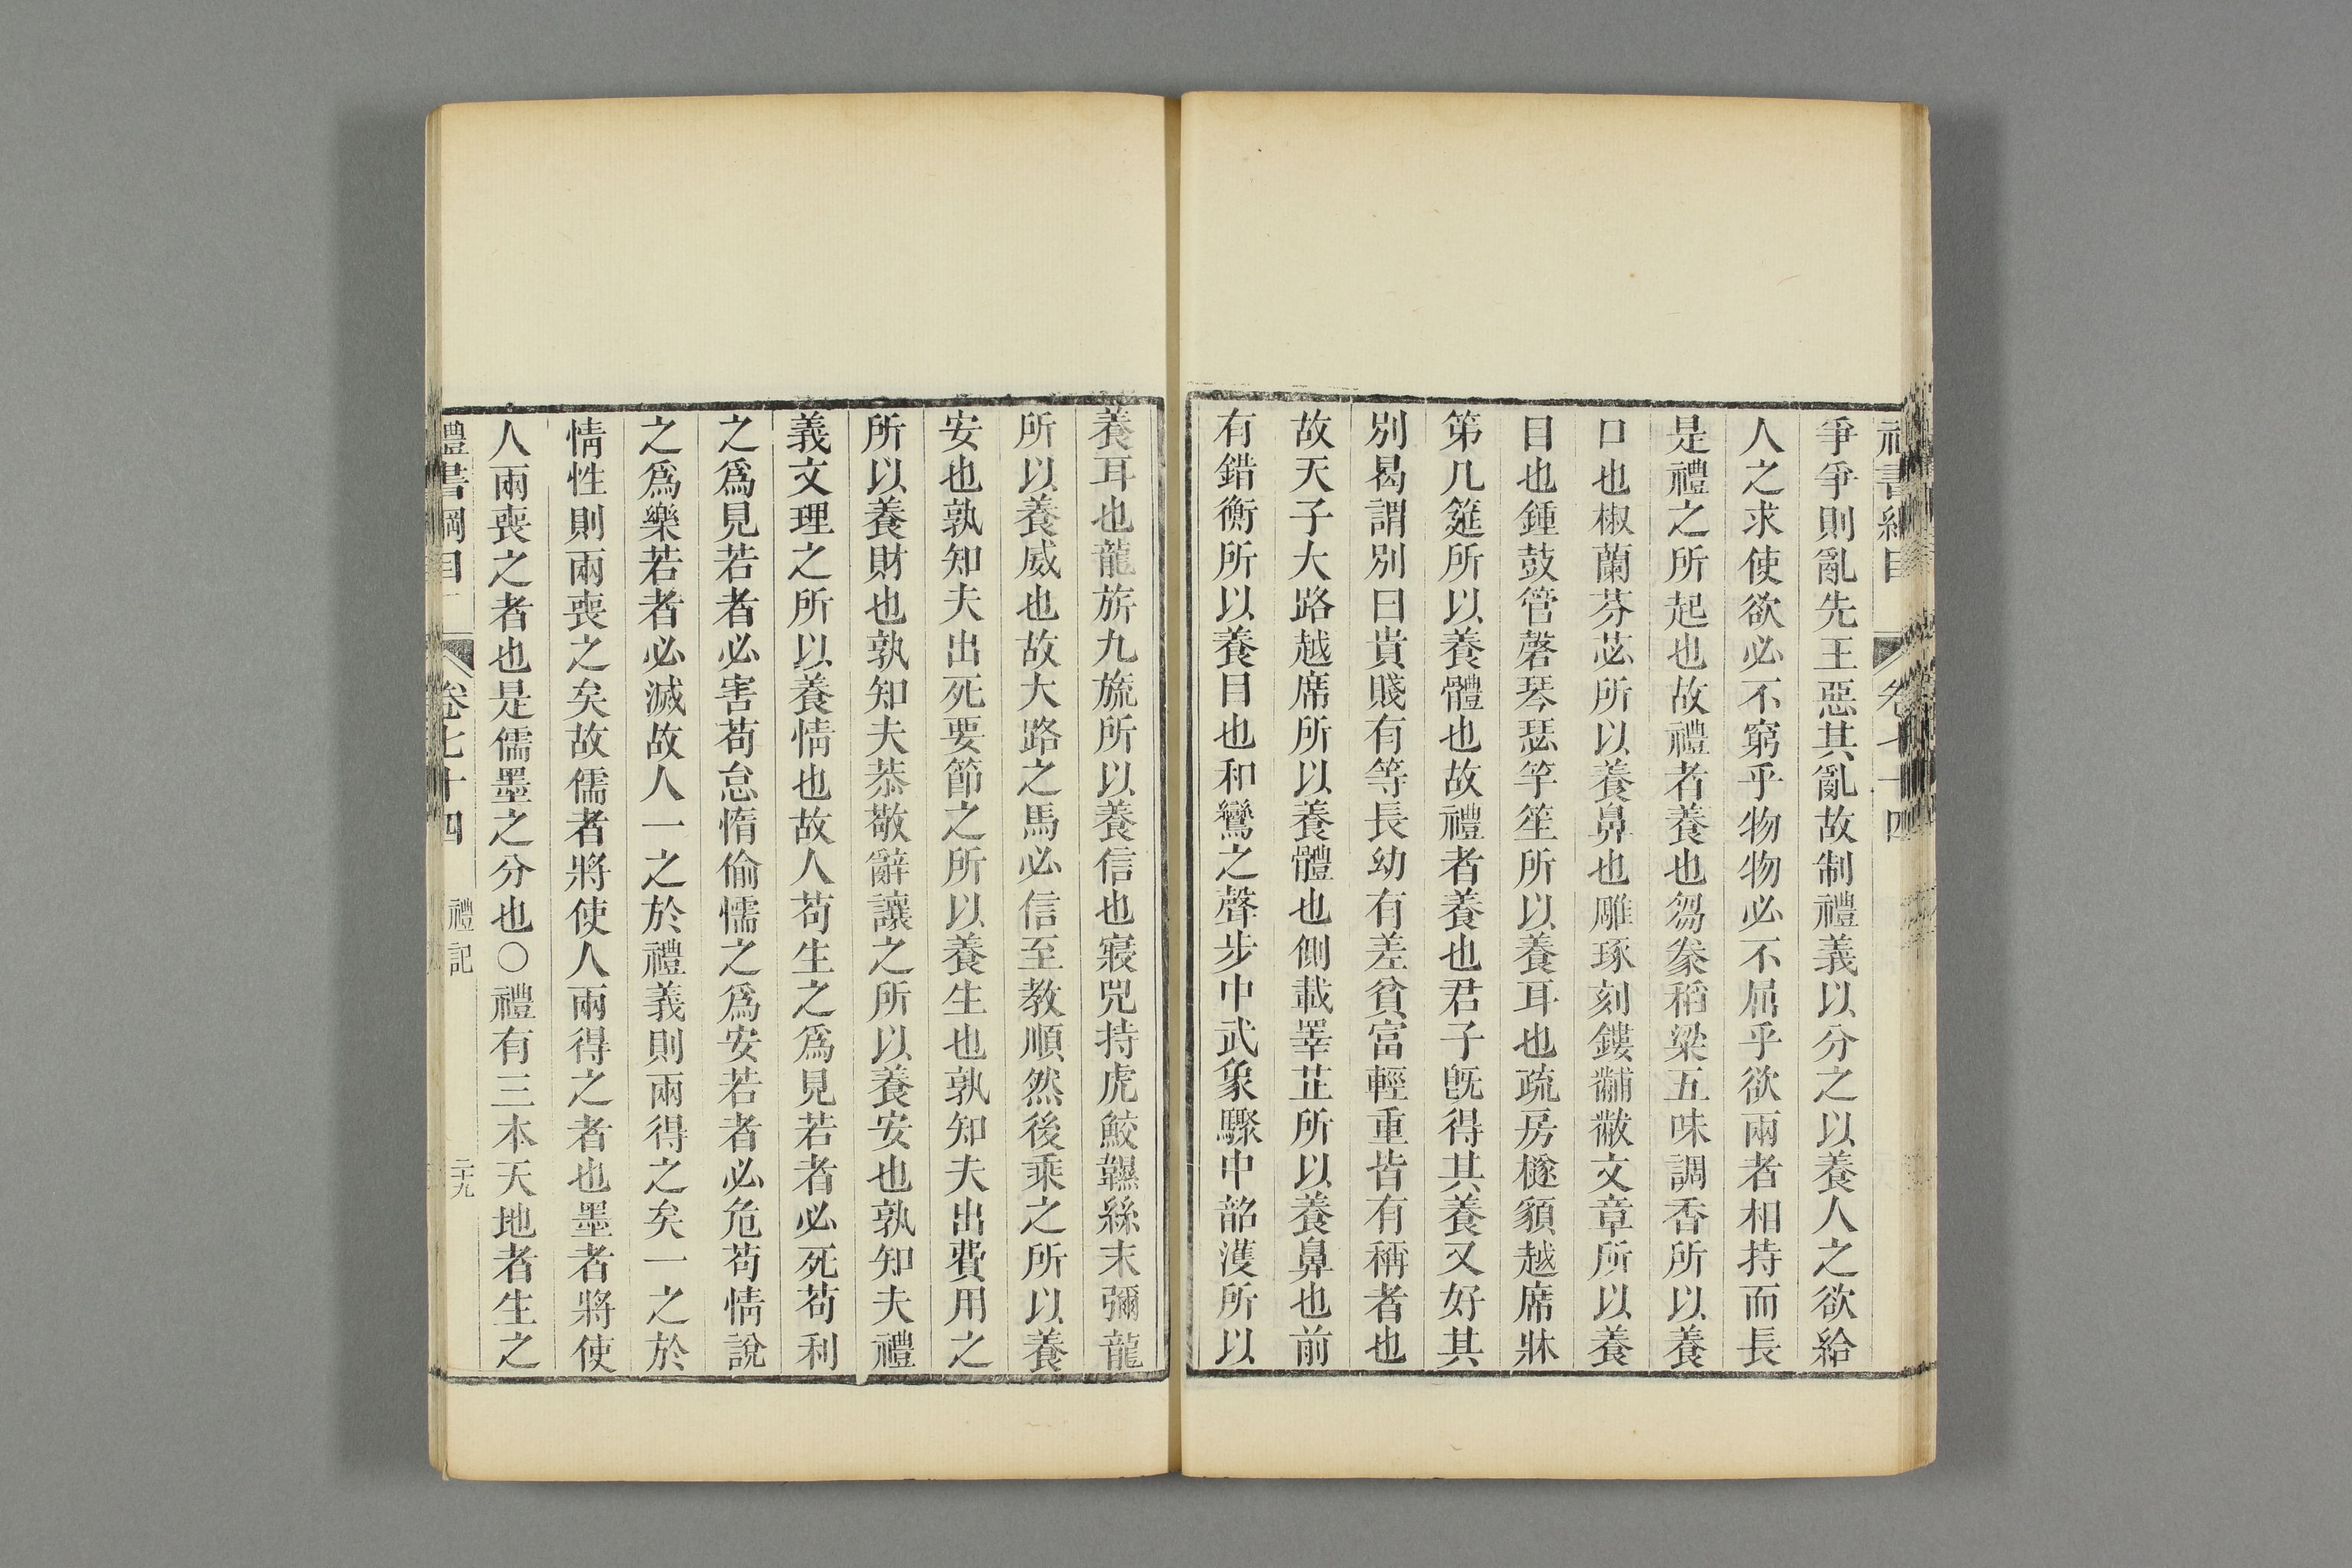 爭爭則亂先王惡其亂故制禮義以分之以養人之欲給
人之求使欲必不窮乎物物必不屈乎欲兩者相持而長
是禮之所起也故禮者養也芻豢稻梁五味調香所以養
口也椒蘭芬苾所以養鼻也雕琢刻鏤黼黻文章所以養
目也鍾鼓管磬琴瑟竽笙所以養耳也疏房檖䫉越席牀
第几筵所以養體也故禮者養也君子旣得其養又好其
別曷謂別曰貴賤有等長幼有差貧富輕重皆有稱者也
故天子大路越席所以養體也側載睪芷所以養鼻也前
有錯衡所以養目也和鸞之聲步中武象驟中韶濩所以
養耳也龍旂九旒所以養信也寢兕持虎鮫韅絲末彌龍
所以養威也故大路之馬必信至教順然後乘之所以養
安也孰知夫出死要節之所以養生也孰知夫出費用之
所以養財也孰知夫恭敬辭讓之所以養安也孰知夫禮
義文理之所以養情也故人苟生之爲見若者必死苟利
之爲見若者必害苟怠惰偷懦之爲安若者必危苟情說
之爲樂若者必滅故人一之於禮義則兩得之矣一之於
情性則兩喪之矣故儒者將使人兩得之者也墨者將使
人兩喪之者也是儒墨之分也○禮有三本天地者生之
禮書綱目 卷七十四 禮記 二十九